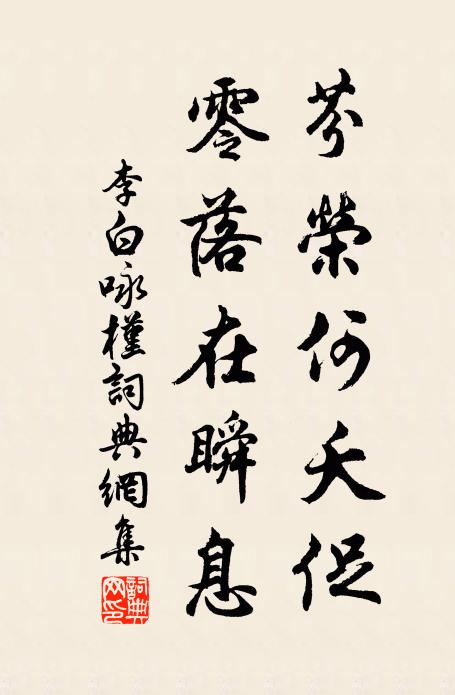 芬榮何夭促
零落在瞬息
李白咏槿詞典網集
詞典網印